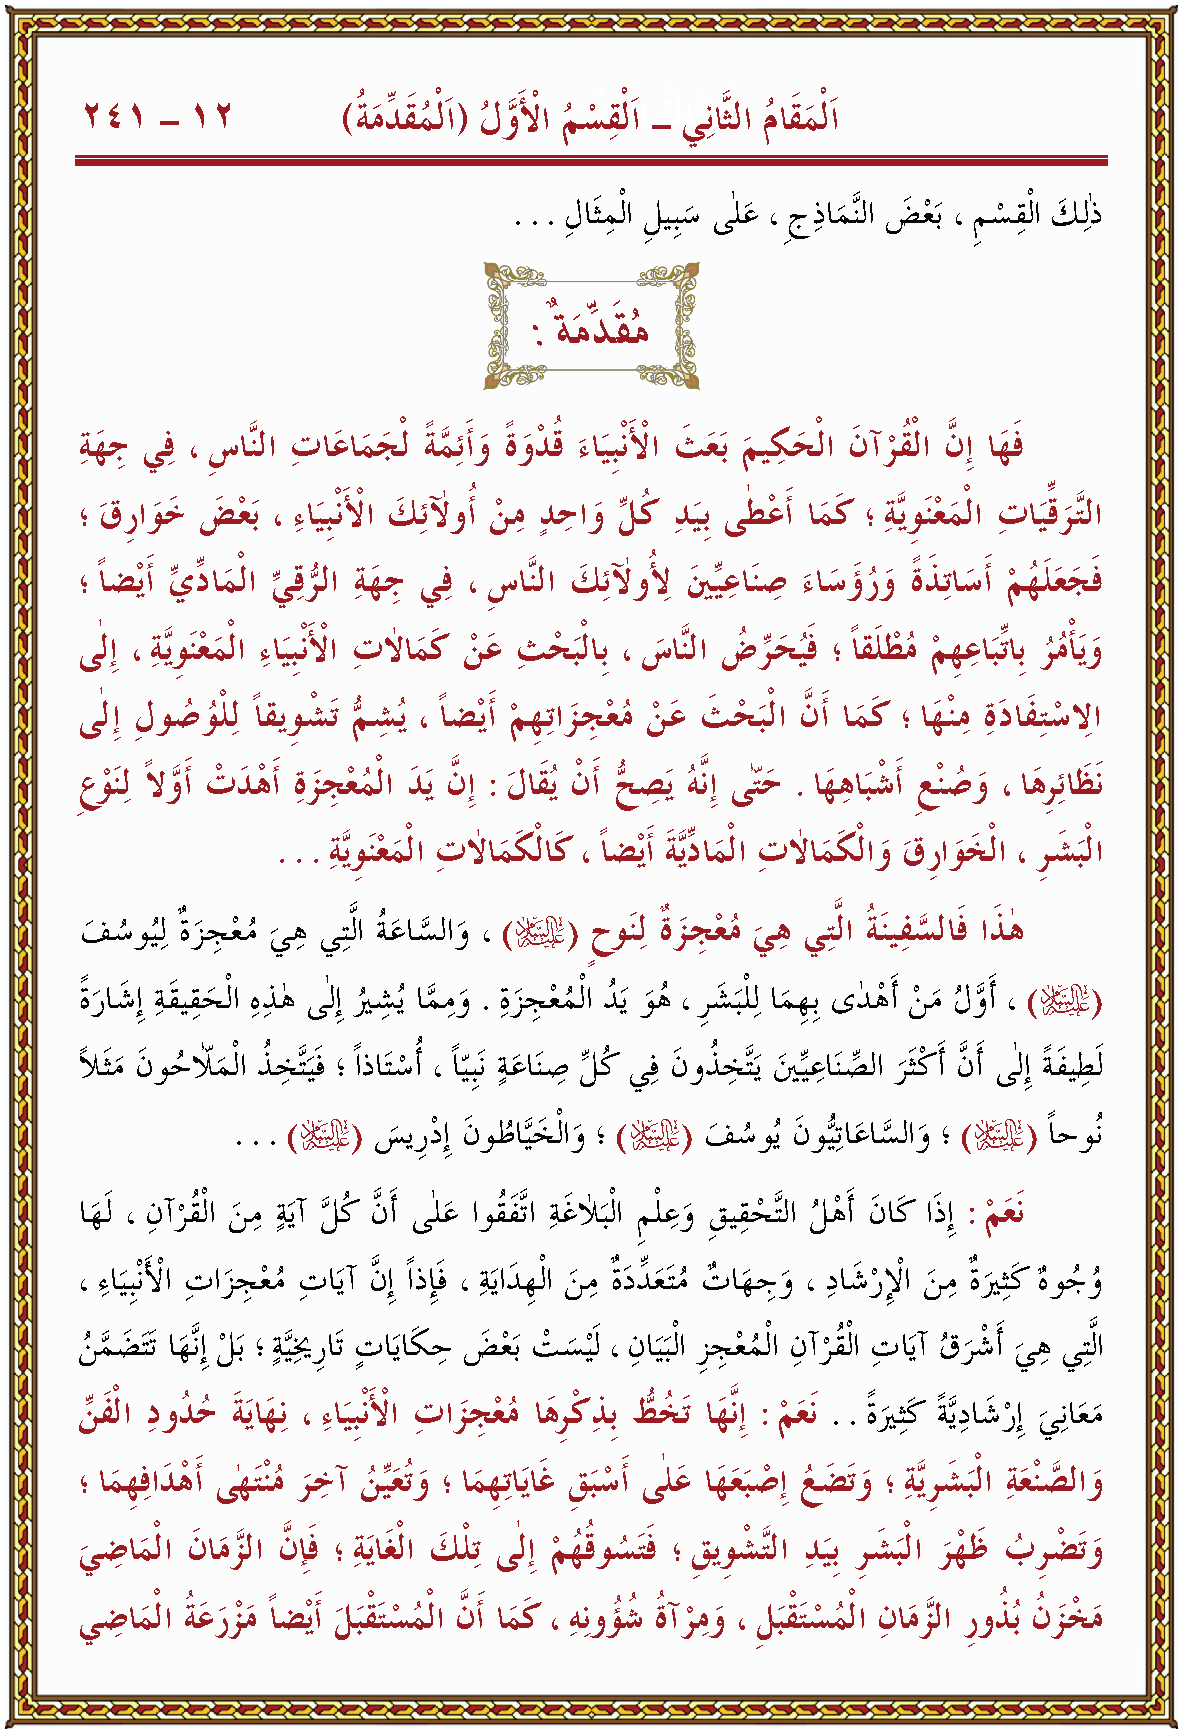 اَلْمَقَامُ الثَّانِي ـ اَلْقِسْمُ الْأَوَّلُ (اَلْمُقَدِّمَةُ) ١٢ ـ ٢٤١
ذٰلِكَ الْقِسْمِ ، بَعْضَ النَّمَاذِجِ ، عَلٰى سَبِيلِ الْمِثَالِ . . .
مُقَدِّمَةٌ :
فَهَا إِنَّ الْقُرْآنَ الْحَكِيمَ بَعَثَ الْأَنْبِيَاءَ قُدْوَةً وَأَئِمَّةً لْجَمَاعَاتِ النَّاسِ ، فِي جِهَةِ
التَّرَقِّيَاتِ الْمَعْنَوِيَّةِ ؛ كَمَا أَعْطٰى بِيَدِ كُلِّ وَاحِدٍ مِنْ أُولٰٓئِكَ الْأَنْبِيَاءِ ، بَعْضَ خَوَارِقَ ؛
فَجَعَلَهُمْ أَسَاتِذَةً وَرُؤَسَاءَ صِنَاعِيِّينَ لِأُولٰٓئِكَ النَّاسِ ، فِي جِهَةِ الرُّقِيِّ الْمَادِّيِّ أَيْضاً ؛
وَيَأْمُرُ بِاتِّبَاعِهِمْ مُطْلَقاً ؛ فَيُحَرِّضُ النَّاسَ ، بِالْبَحْثِ عَنْ كَمَالَاتِ الْأَنْبِيَاءِ الْمَعْنَوِيَّةِ ، إِلٰى
الِاسْتِفَادَةِ مِنْهَا ؛ كَمَا أَنَّ الْبَحْثَ عَنْ مُعْجِزَاتِهِمْ أَيْضاً ، يُشِمُّ تَشْوِيقاً لِلْوُصُولِ إِلٰى
نَظَائِرِهَا ، وَصُنْعِ أَشْبَاهِهَا . حَتّٰى إِنَّهُ يَصِحُّ أَنْ يُقَالَ : إِنَّ يَدَ الْمُعْجِزَةِ أَهْدَتْ أَوَّلاً لِنَوْعِ
الْبَشَرِ ، الْخَوَارِقَ وَالْكَمَالَاتِ الْمَادِّيَّةَ أَيْضاً ، كَالْكَمَالَاتِ الْمَعْنَوِيَّةِ . . .
هٰذَا فَالسَّفِينَةُ الَّتِي هِيَ مُعْجِزَةٌ لِنَوحٍ (عليه السلام) ، وَالسَّاعَةُ الَّتِي هِيَ مُعْجِزَةٌ لِيُوسُفَ
(عليه السلام) ، أَوَّلُ مَنْ أَهْدٰى بِهِمَا لِلْبَشَرِ ، هُوَ يَدُ الْمُعْجِزَةِ . وَمِمَّا يُشِيرُ إِلٰى هٰذِهِ الْحَقِيقَةِ إِشَارَةً
لَطِيفَةً إِلٰى أَنَّ أَكْثَرَ الصِّنَاعِيِّينَ يَتَّخِذُونَ فِي كُلِّ صِنَاعَةٍ نَبِيّاً ، أُسْتَاذاً ؛ فَيَتَّخِذُ الْمَلَّاحُونَ مَثَلاً
نُوحاً (عليه السلام) ؛ وَالسَّاعَاتِيُّونَ يُوسُفَ (عليه السلام) ؛ وَالْخَيَّاطُونَ إِدْرِيسَ (عليه السلام) . . .
نَعَمْ : إِذَا كَانَ أَهْلُ التَّحْقِيقِ وَعِلْمِ الْبَلَاغَةِ اتَّفَقُوا عَلٰى أَنَّ كُلَّ آيَةٍ مِنَ الْقُرْآنِ ، لَهَا
وُجُوهٌ كَثِيرَةٌ مِنَ الْإِرْشَادِ ، وَجِهَاتٌ مُتَعَدِّدَةٌ مِنَ الْهِدَايَةِ ، فَإِذاً إِنَّ آيَاتِ مُعْجِزَاتِ الْأَنْبِيَاءِ ،
الَّتِي هِيَ أَشْرَقُ آيَاتِ الْقُرْآنِ الْمُعْجِزِ الْبَيَانِ ، لَيْسَتْ بَعْضَ حِكَايَاتٍ تَارِيخِيَّةٍ ؛ بَلْ إِنَّهَا تَتَضَمَّنُ
مَعَانِيَ إِرْشَادِيَّةً كَثِيرَةً . . نَعَمْ : إِنَّهَا تَخُطُّ بِذِكْرِهَا مُعْجِزَاتِ الْأَنْبِيَاءِ ، نِهَايَةَ حُدُودِ الْفَنِّ
وَالصَّنْعَةِ الْبَشَرِيَّةِ ؛ وَتَضَعُ إِصْبَعَهَا عَلٰى أَسْبَقِ غَايَاتِهِمَا ؛ وَتُعَيِّنُ آخِرَ مُنْتَهٰى أَهْدَافِهِمَا ؛
وَتَضْرِبُ ظَهْرَ الْبَشَرِ بِيَدِ التَّشْوِيقِ ؛ فَتَسُوقُهُمْ إِلٰى تِلْكَ الْغَايَةِ ؛ فَإِنَّ الزَّمَانَ الْمَاضِيَ
مَخْزَنُ بُذُورِ الزَّمَانِ الْمُسْتَقْبَلِ ، وَمِرْآةُ شُؤُونِهِ ، كَمَا أَنَّ الْمُسْتَقْبَلَ أَيْضاً مَزْرَعَةُ الْمَاضِي